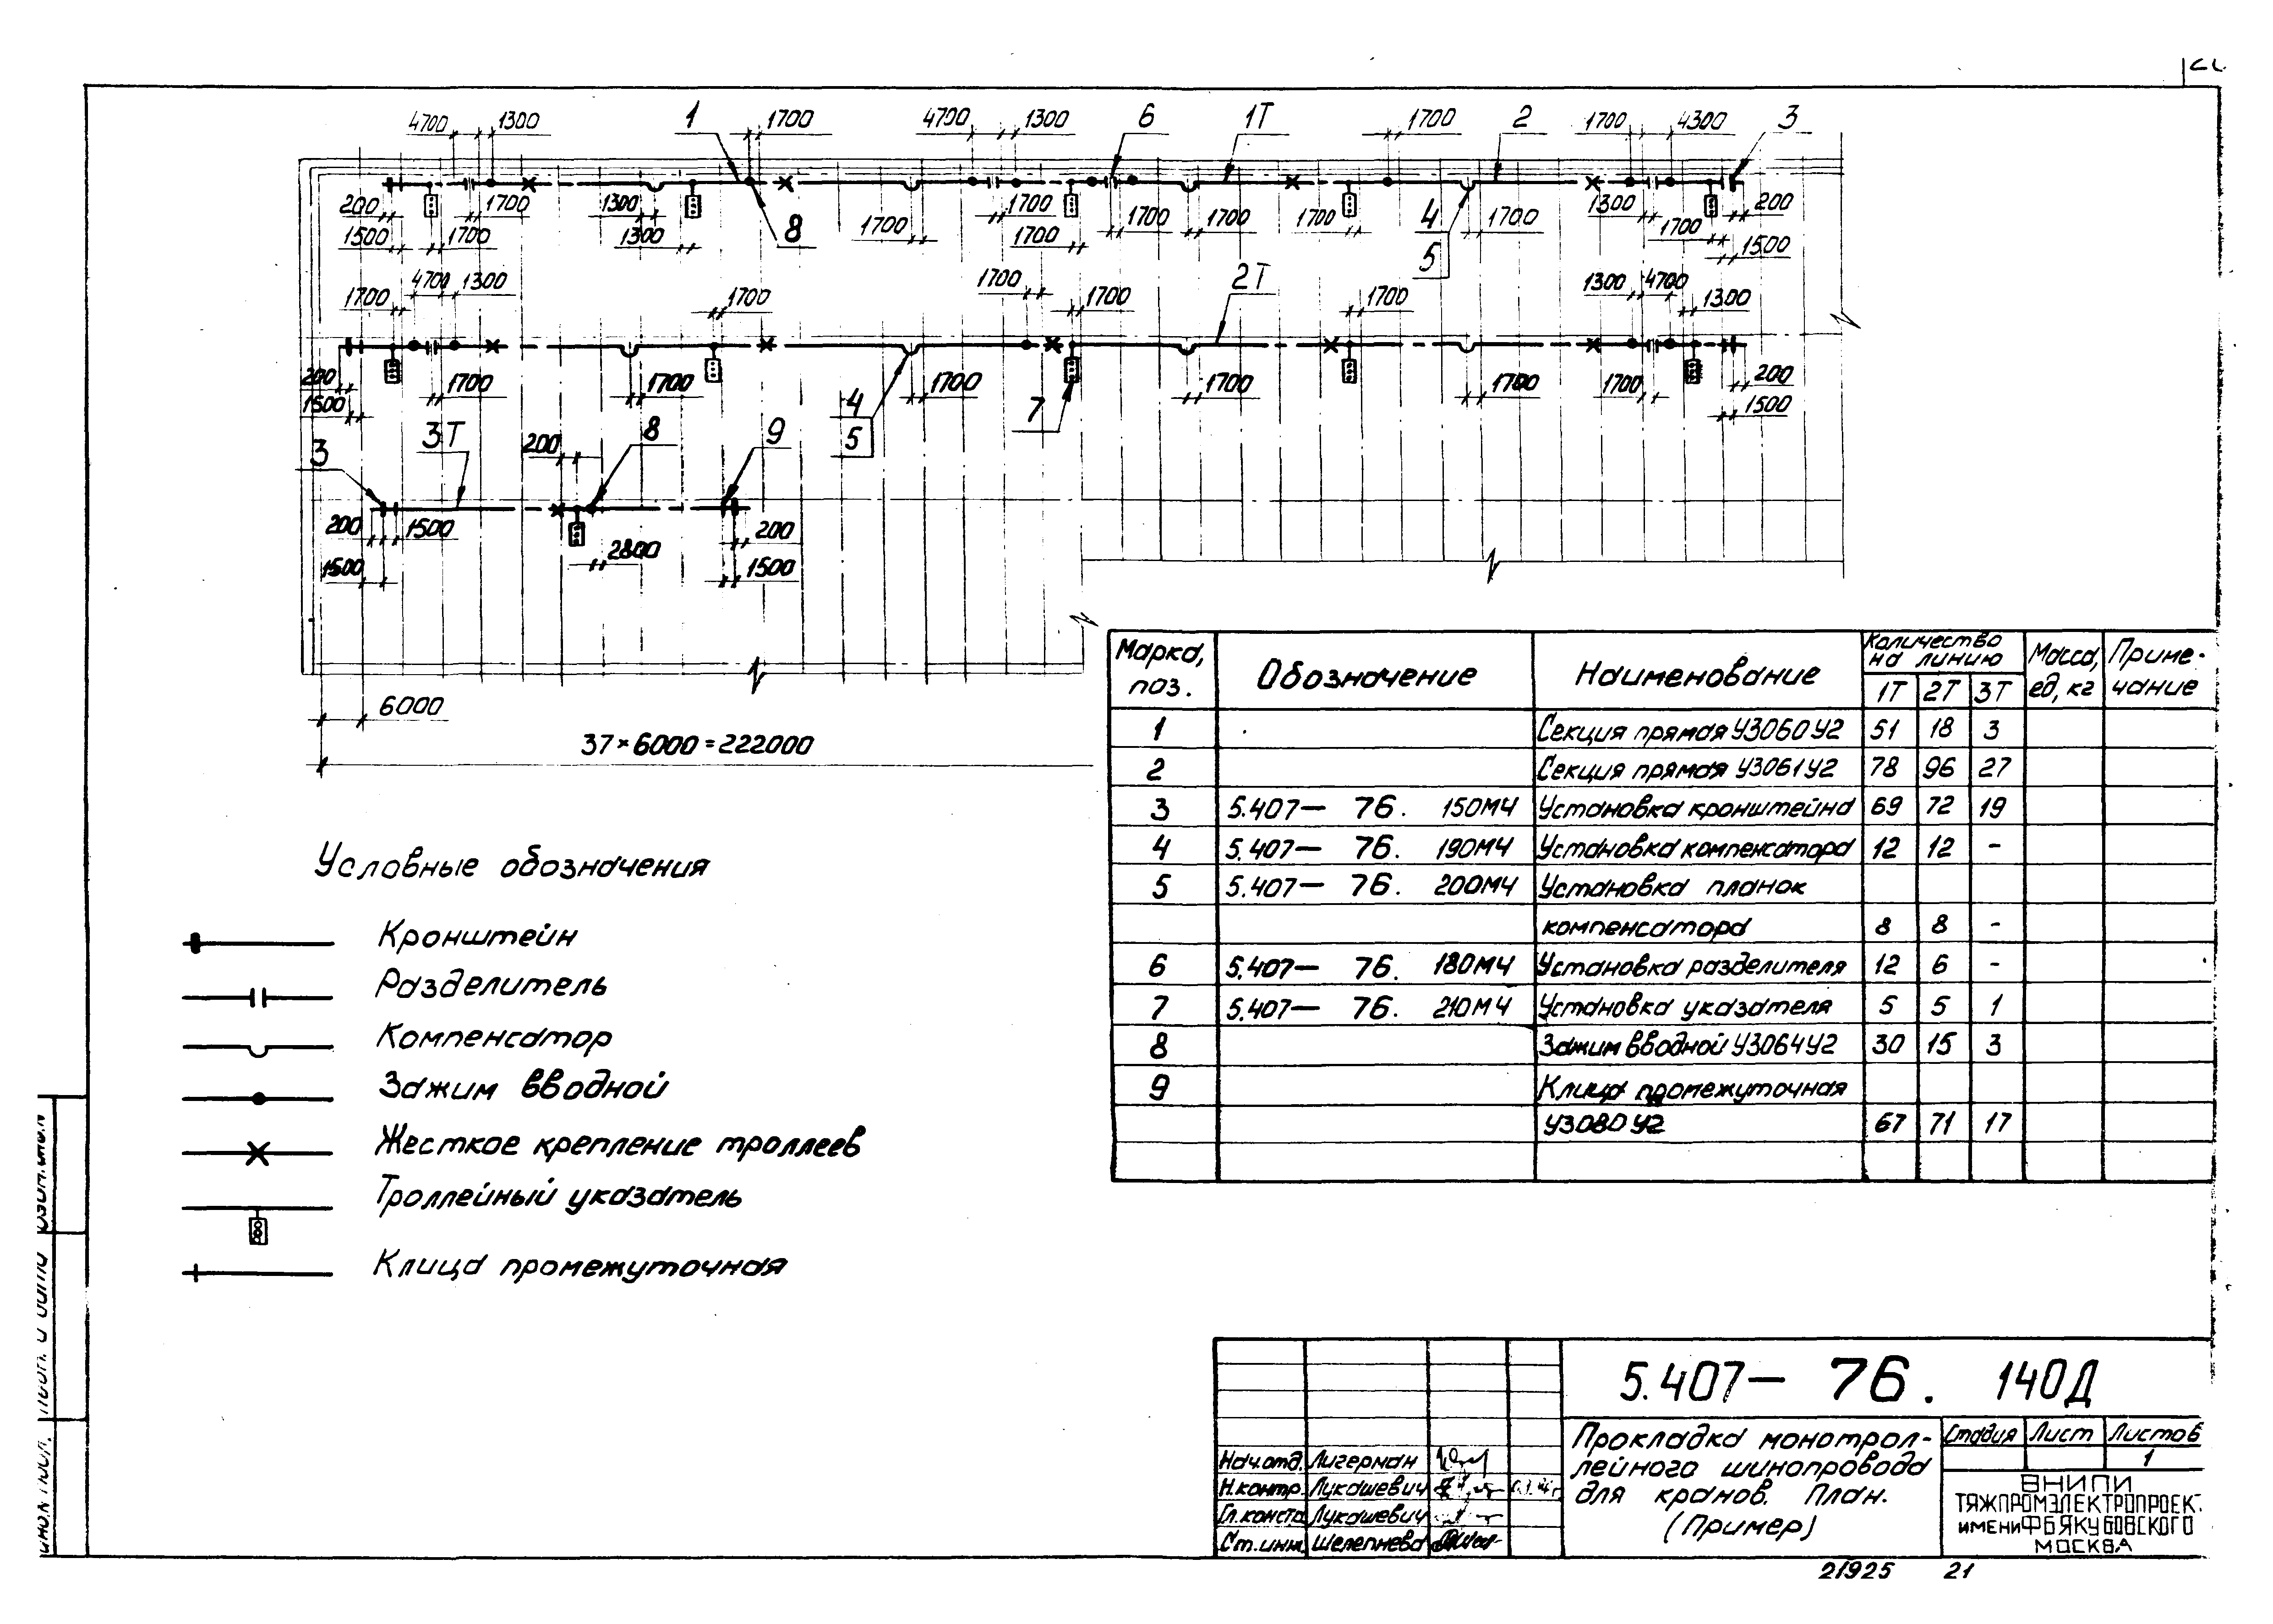 4700 1300 1 1700 4700 1300 6 1Т 1700 2 1700 4300 3
200 1700 1300 8 1700 1700 1700 1700 1700 4 1700 1300 200
1500 1700 1300 1700 5 1700 1500
1700 4700 1300 1700 1700 1700 2Т 1700 1300 4700 1300
200 1700 1700 4 1700 7 1700 1700 1700 200
1500 5 1500
3 3Т 200 8 9
200 1500 2800 200
1500 1500
6000
37×6000=222000
Марка, поз. Обозначение Наименование Количество на линию Масса, ед, кг Приме-чание
1Т 2Т 3Т
1 Секция прямая У3060У2 51 18 3
2 Секция прямая У3061У2 78 96 27
3 5.407— 76. 150МЧ Установка кронштейна 69 72 19
4 5.407— 76. 190МЧ Установка компенсатора 12 12 -
5 5.407— 76. 200МЧ Установка планок
компенсатора 8 8 -
6 5.407— 76. 180МЧ Установка разделителя 12 6 -
7 5.407— 76. 210МЧ Установка указателя 5 5 1
8 Зажим вводной У3064У2 30 15 3
9 Клица промежуточная
У3080У2 67 71 17
Условные обозначения
Кронштейн
Разделитель
Компенсатор
Зажим вводной
Жесткое крепление троллеев
Троллейный указатель
Клица промежуточная
5.407— 76. 140Д
Прокладка монотрол-
лейного шинопровода
для кранов. План.
(Пример)
Стадия Лист Листов
1
ВНИПИ
ТЯЖПРОМЭЛЕКТРОПРОЕКТ
ИМЕНИ Ф Б ЯКУБОВСКОГО
МОСКВА
Нач.отд. Лигерман
Н.контр. Лукашевич
Гл.констр Лукашевич
Ст.инж. Шелепнева
21925 21